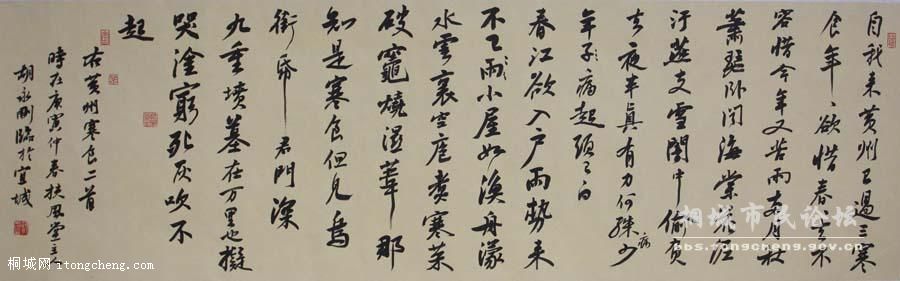 自我来黄州已過三寒
食年〻欲惜春〻去不
容惜今年又苦雨两月秋
蕭瑟卧闻海棠花泥
汙燕支雪闇中偷負
去夜半真有力何殊少
病
年子病起頭已白
春江欲入户雨勢来
不已雨小屋如漁舟濛
水雲裏空庖煮寒菜
破竈燒湿葦那
知是寒食但见烏
銜帋君門深
九重墳墓在万里也擬
哭塗窮死灰吹不
起
右黄州寒食二首
時在庚寅仲春扶風堂主人
胡永刚臨於宣城
桐城市民论坛
bbs.tongcheng.gov.cn
桐城网 itongcheng.com
itongcheng.com